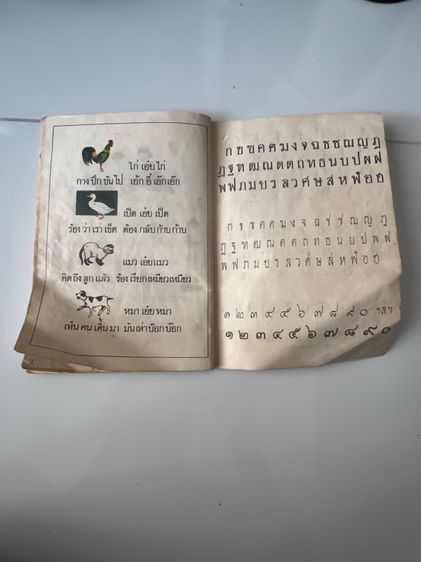 ไก่ เอ๋ย ไก่
กางปีก ขันไป เอ้ก อี๋ เอ้กเอ้ก
เป็ด เอ๋ย เป็ด
ร้อง ว่า เรา เข็ด ต้อง กลับ ก้าบ ก้าบ
แมว เอ๋ย แมว
คิด ถึง ลูก แล้ว ร้อง เรียก เหมียวเหมียว
หมา เอ๋ย หมา
เห็น คน เดิน มา มัน เห่า บ๊อก บ๊อก
ก ข ฃ ค ฅ ฆ ง จ ฉ ช ซ ฌ ญ ฎ
ฏ ฐ ฑ ฒ ณ ด ต ถ ท ธ น บ ป ผ ฝ
พ ฟ ภ ม ย ร ล ว ศ ษ ส ห ฬ อ ฮ
ก ข ฃ ค ฅ ฆ ง จ ฉ ช ซ ฌ ญ ฎ
ฏ ฐ ฑ ฒ ณ ด ต ถ ท ธ น บ ป ผ ฝ
พ ฟ ภ ม ย ร ล ว ศ ษ ส ห ฬ อ ฮ
๑ ๒ ๓ ๔ ๕ ๖ ๗ ๘ ๙ ๐ ฯลฯ
๑ ๒ ๓ ๔ ๕ ๖ ๗ ๘ ๙ ๐